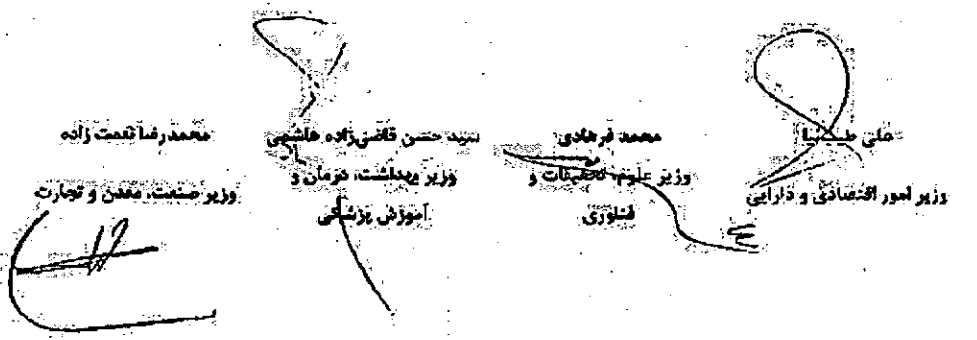 علی طیب‌نیا
وزیر امور اقتصادی و دارایی
محمد فرهادی
وزیر علوم، تحقیقات و
فناوری
سید حسن قاضی‌زاده هاشمی
وزیر بهداشت، درمان و
آموزش پزشکی
محمدرضا نعمت زاده
وزیر صنعت، معدن و تجارت